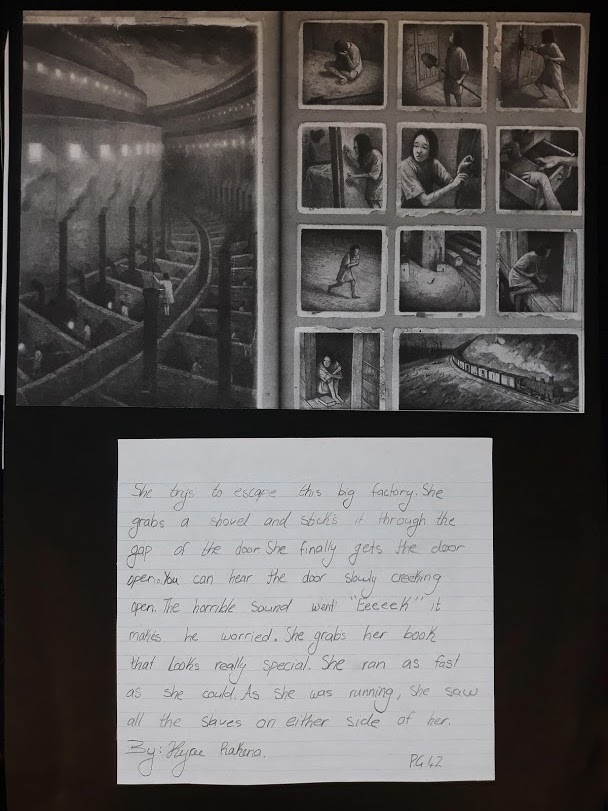 She trys to escape this big factory. She
grabs a shovel and sticks it through the
gap of the door She finally gets the door
open. You can hear the door slowly creeking
open. The horrible sound went "Eeeeek" it
makes he worried. She grabs her book
that Looks really special. She ran as fast
as she could. As she was running, she saw
all the slaves on either side of her.
By: Rakena.
PG 42